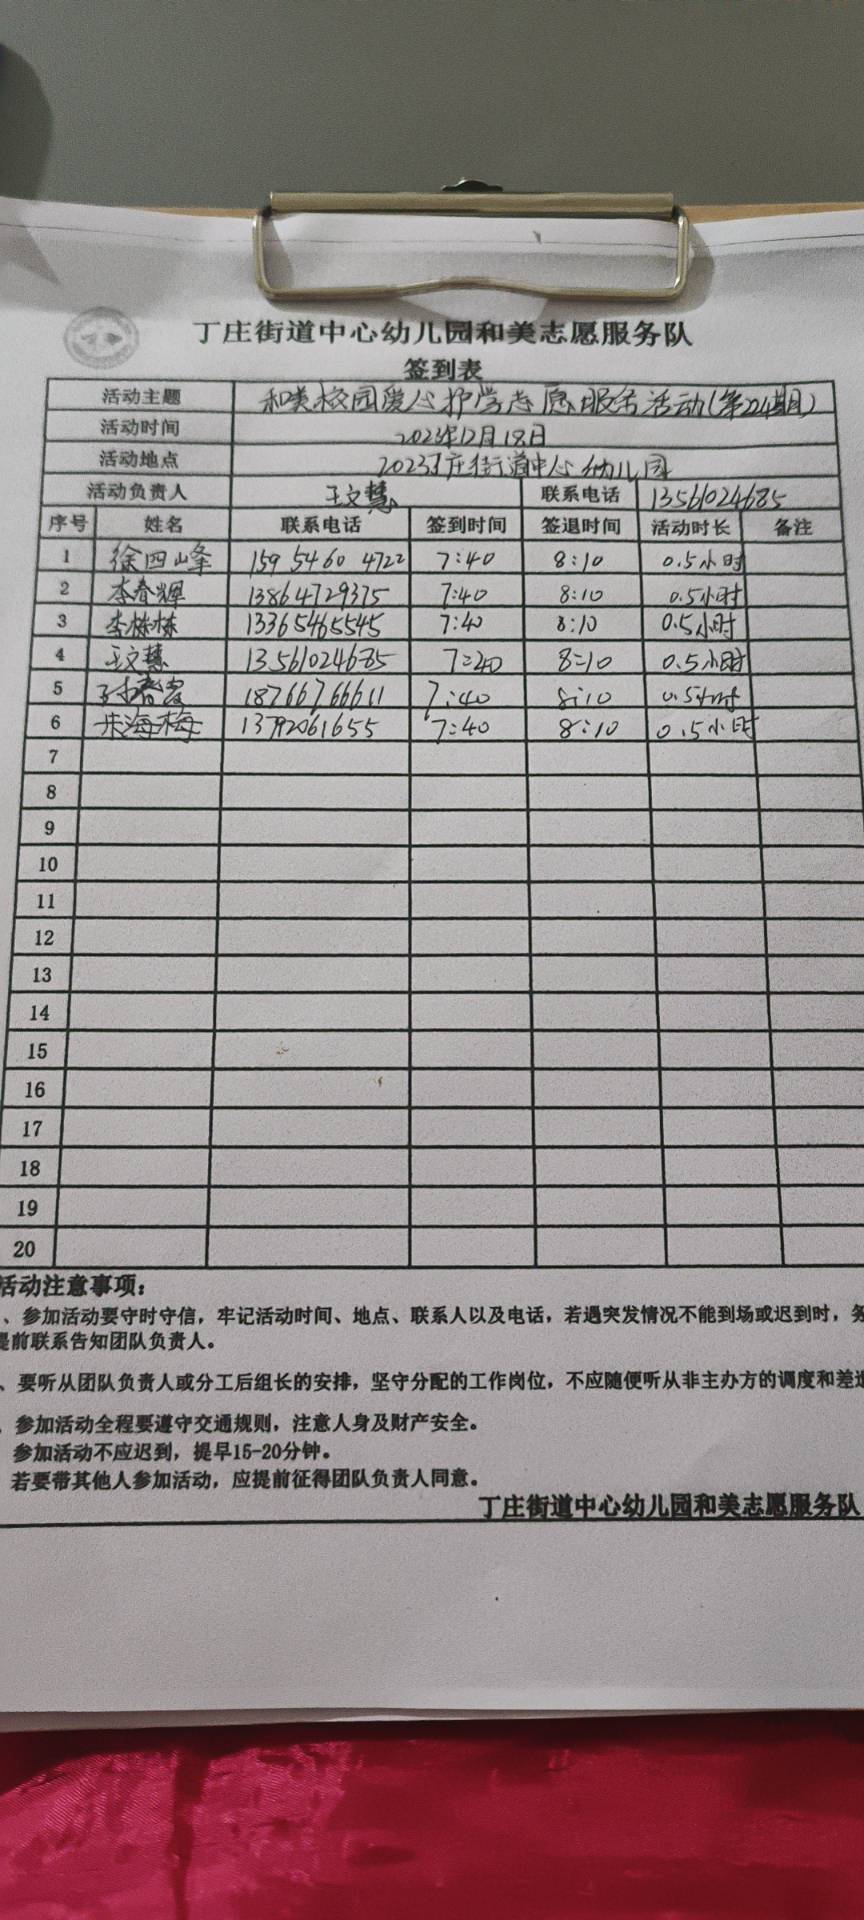 丁庄街道中心幼儿园和美志愿服务队
签到表
活动主题 和美校园爱心护学志愿服务活动(第224期)
活动时间 2023年12月18日
活动地点 2023丁庄街道中心幼儿园
活动负责人 王文慧 联系电话 13561024685
序号 姓名 联系电话 签到时间 签退时间 活动时长 备注
1 徐四峰 159 5460 4722 7:40 8:10 0.5小时
2 李春辉 13864729375 7:40 8:10 0.5小时
3 李栋栋 13365465545 7:40 8:10 0.5小时
4 王文慧 13561024685 7:40 8:10 0.5小时
5 18766766611 7:40 8:10 0.5小时
6 朱海梅 13792061655 7:40 8:10 0.5小时
7
8
9
10
11
12
13
14
15
16
17
18
19
20
活动注意事项：
、参加活动要守时守信，牢记活动时间、地点、联系人以及电话，若遇突发情况不能到场或迟到时，务
提前联系告知团队负责人。
、要听从团队负责人或分工后组长的安排，坚守分配的工作岗位，不应随便听从非主办方的调度和差遣
参加活动全程要遵守交通规则，注意人身及财产安全。
参加活动不应迟到，提早15-20分钟。
若要带其他人参加活动，应提前征得团队负责人同意。
丁庄街道中心幼儿园和美志愿服务队